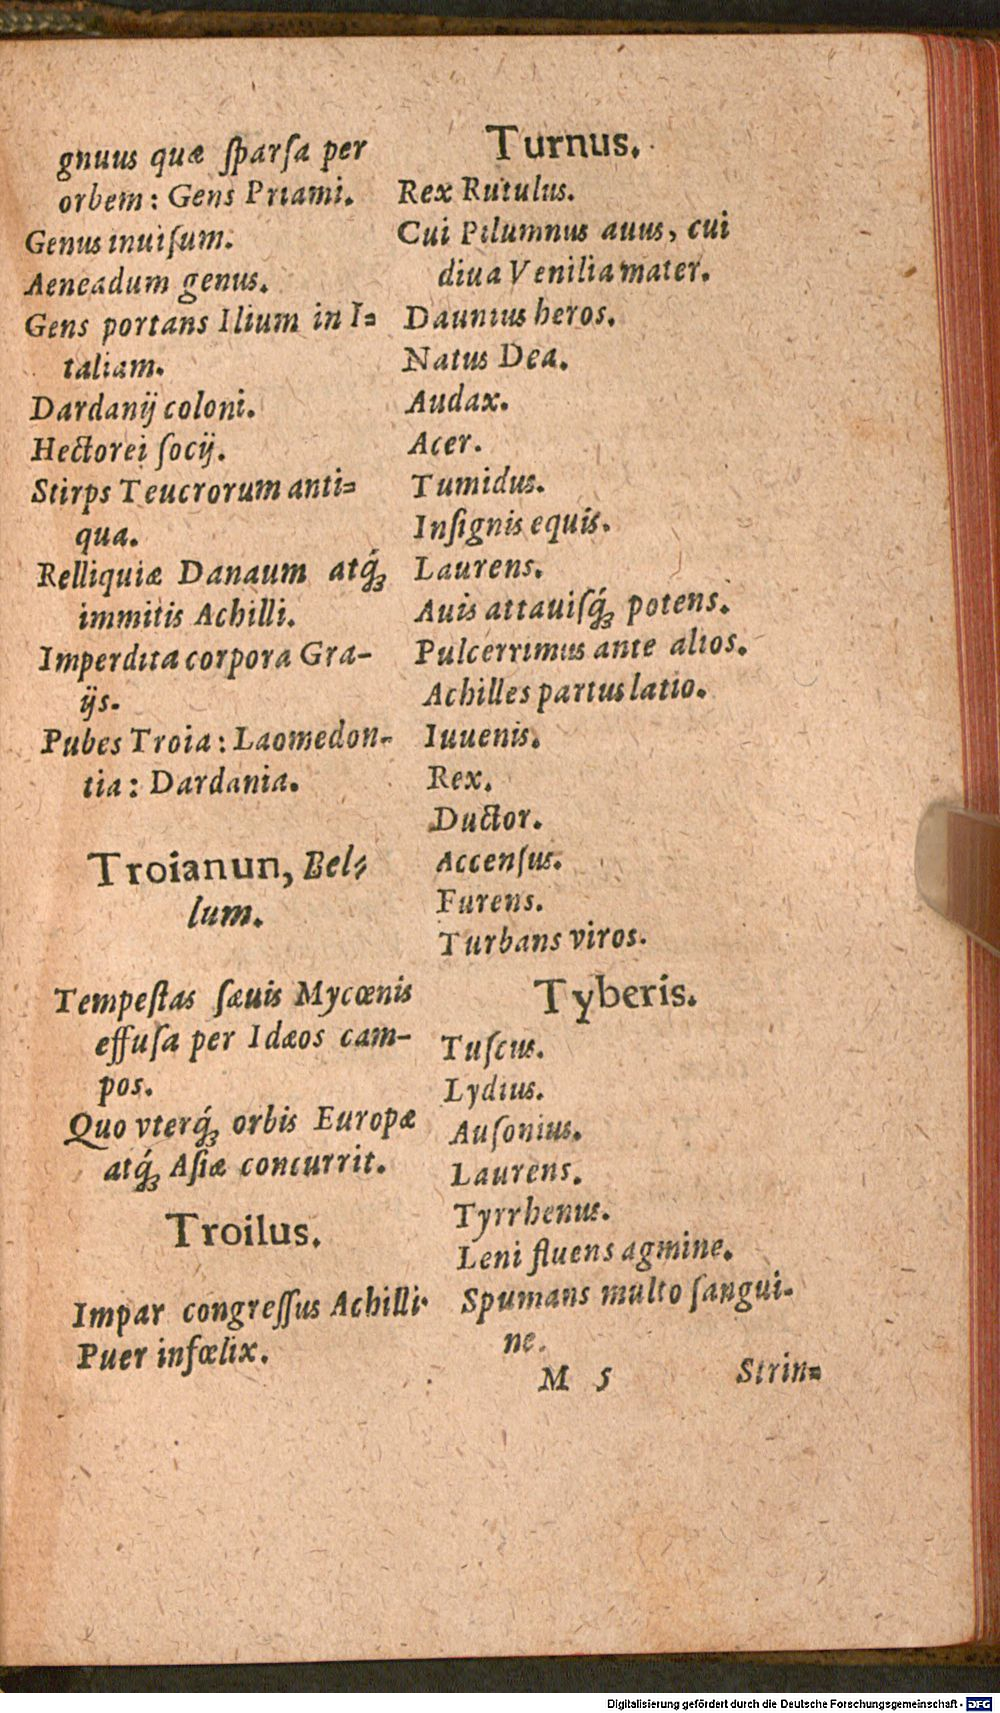 gnuus quæ ſparſa per
orbem: Gens Priami.
Genus inuiſum.
Aeneadum genus.
Gens portans Ilium in I=
taliam.
Dardanij coloni.
Hectorei ſocij.
Stirps Teucrorum anti=
qua.
Relliquiæ Danaum atq́ꝫ
immitis Achilli.
Imperdita corpora Gra-
ijs.
Pubes Troia: Laomedon-
tia: Dardania.
Troianun, Bel=
lum.
Tempeſtas ſæuis Mycœnis
effuſa per Idæos cam-
pos.
Quo vterq́ꝫ orbis Europæ
atq́ꝫ Aſiæ concurrit.
Troilus.
Impar congreſſus Achilli.
Puer infœlix.
Turnus.
Rex Rutulus.
Cui Pilumnus auus, cui
diua Venilia mater.
Daunius heros.
Natus Dea.
Audax.
Acer.
Tumidus.
Inſignis equis.
Laurens.
Auis attauiſq́ꝫ potens.
Pulcerrimus ante alios.
Achilles partus latio.
Iuuenis.
Rex.
Ductor.
Accenſus.
Furens.
Turbans viros.
Tyberis.
Tuſcus.
Lydius.
Auſonius.
Laurens.
Tyrrhenus.
Leni fluens agmine.
Spumans multo ſangui-
ne.
M 5 Strin=
Digitalisierung gefördert durch die Deutsche Forschungsgemeinschaft - DFG